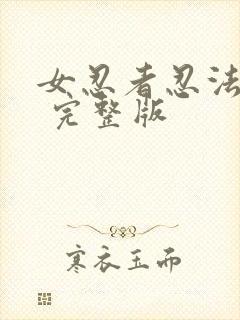 女忍者忍法
完整版
寒衣玉而